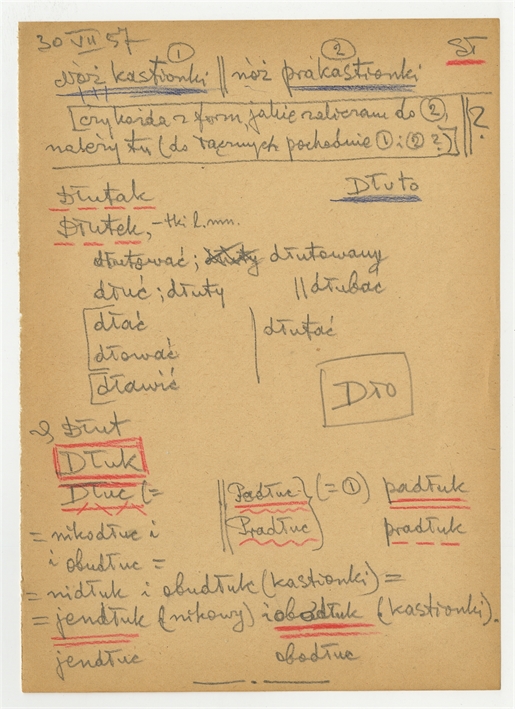 30 VII 57
① ② SŁ
nóż kastionki || nóż prakastionki
[czy każda z form, jakie zaliczam do ②,
należy tu (do łącznych pochodnie ① i ② ?)] || ?
Dłutak Dłuto
Dłutek, -tki l. mn.
dłutować; dłuty dłutowany
dłuć; dłuty || dłubać
dłać | dłutać
dłować
dławić
Dło
Dłut
Dłuk
Dłuc (= || Padłuc } (= ①) padłuk
Pradłuc pradłuk
= nikodłuc i
i obudłuc =
= nidłuk i obudłuk (kastionki) =
= jendłuk (nikowy) i obodłuk (kastionki).
jendłuc obodłuc